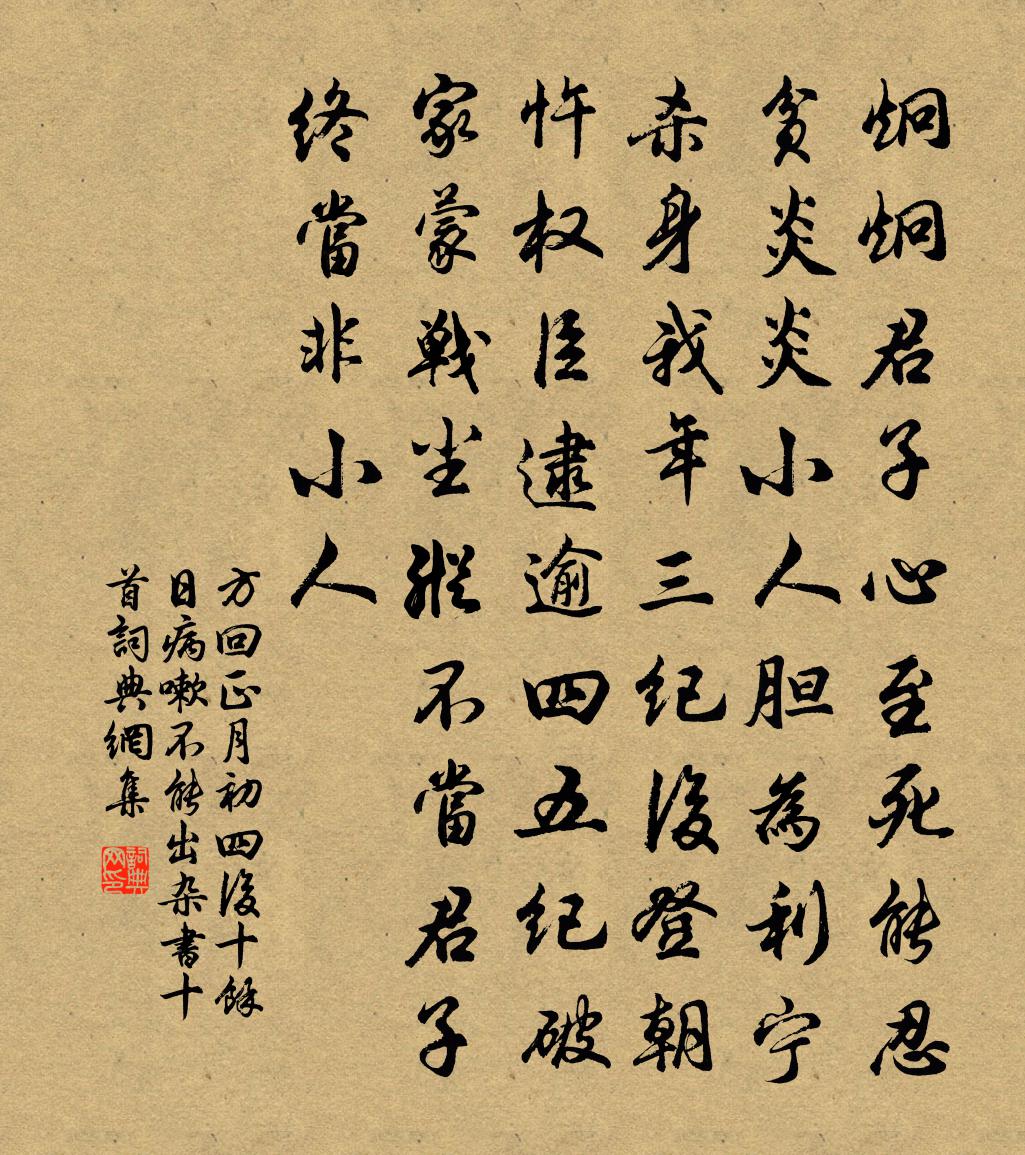 炯炯君子心至死能忍
贫炎炎小人胆為利宁
杀身我年三纪後登朝
忤权臣逮逾四五纪破
家蒙戦尘縱不當君子
終當非小人
方回正月初四後十餘
日病嗽不能出杂書十
首詞典網集
詞典网印